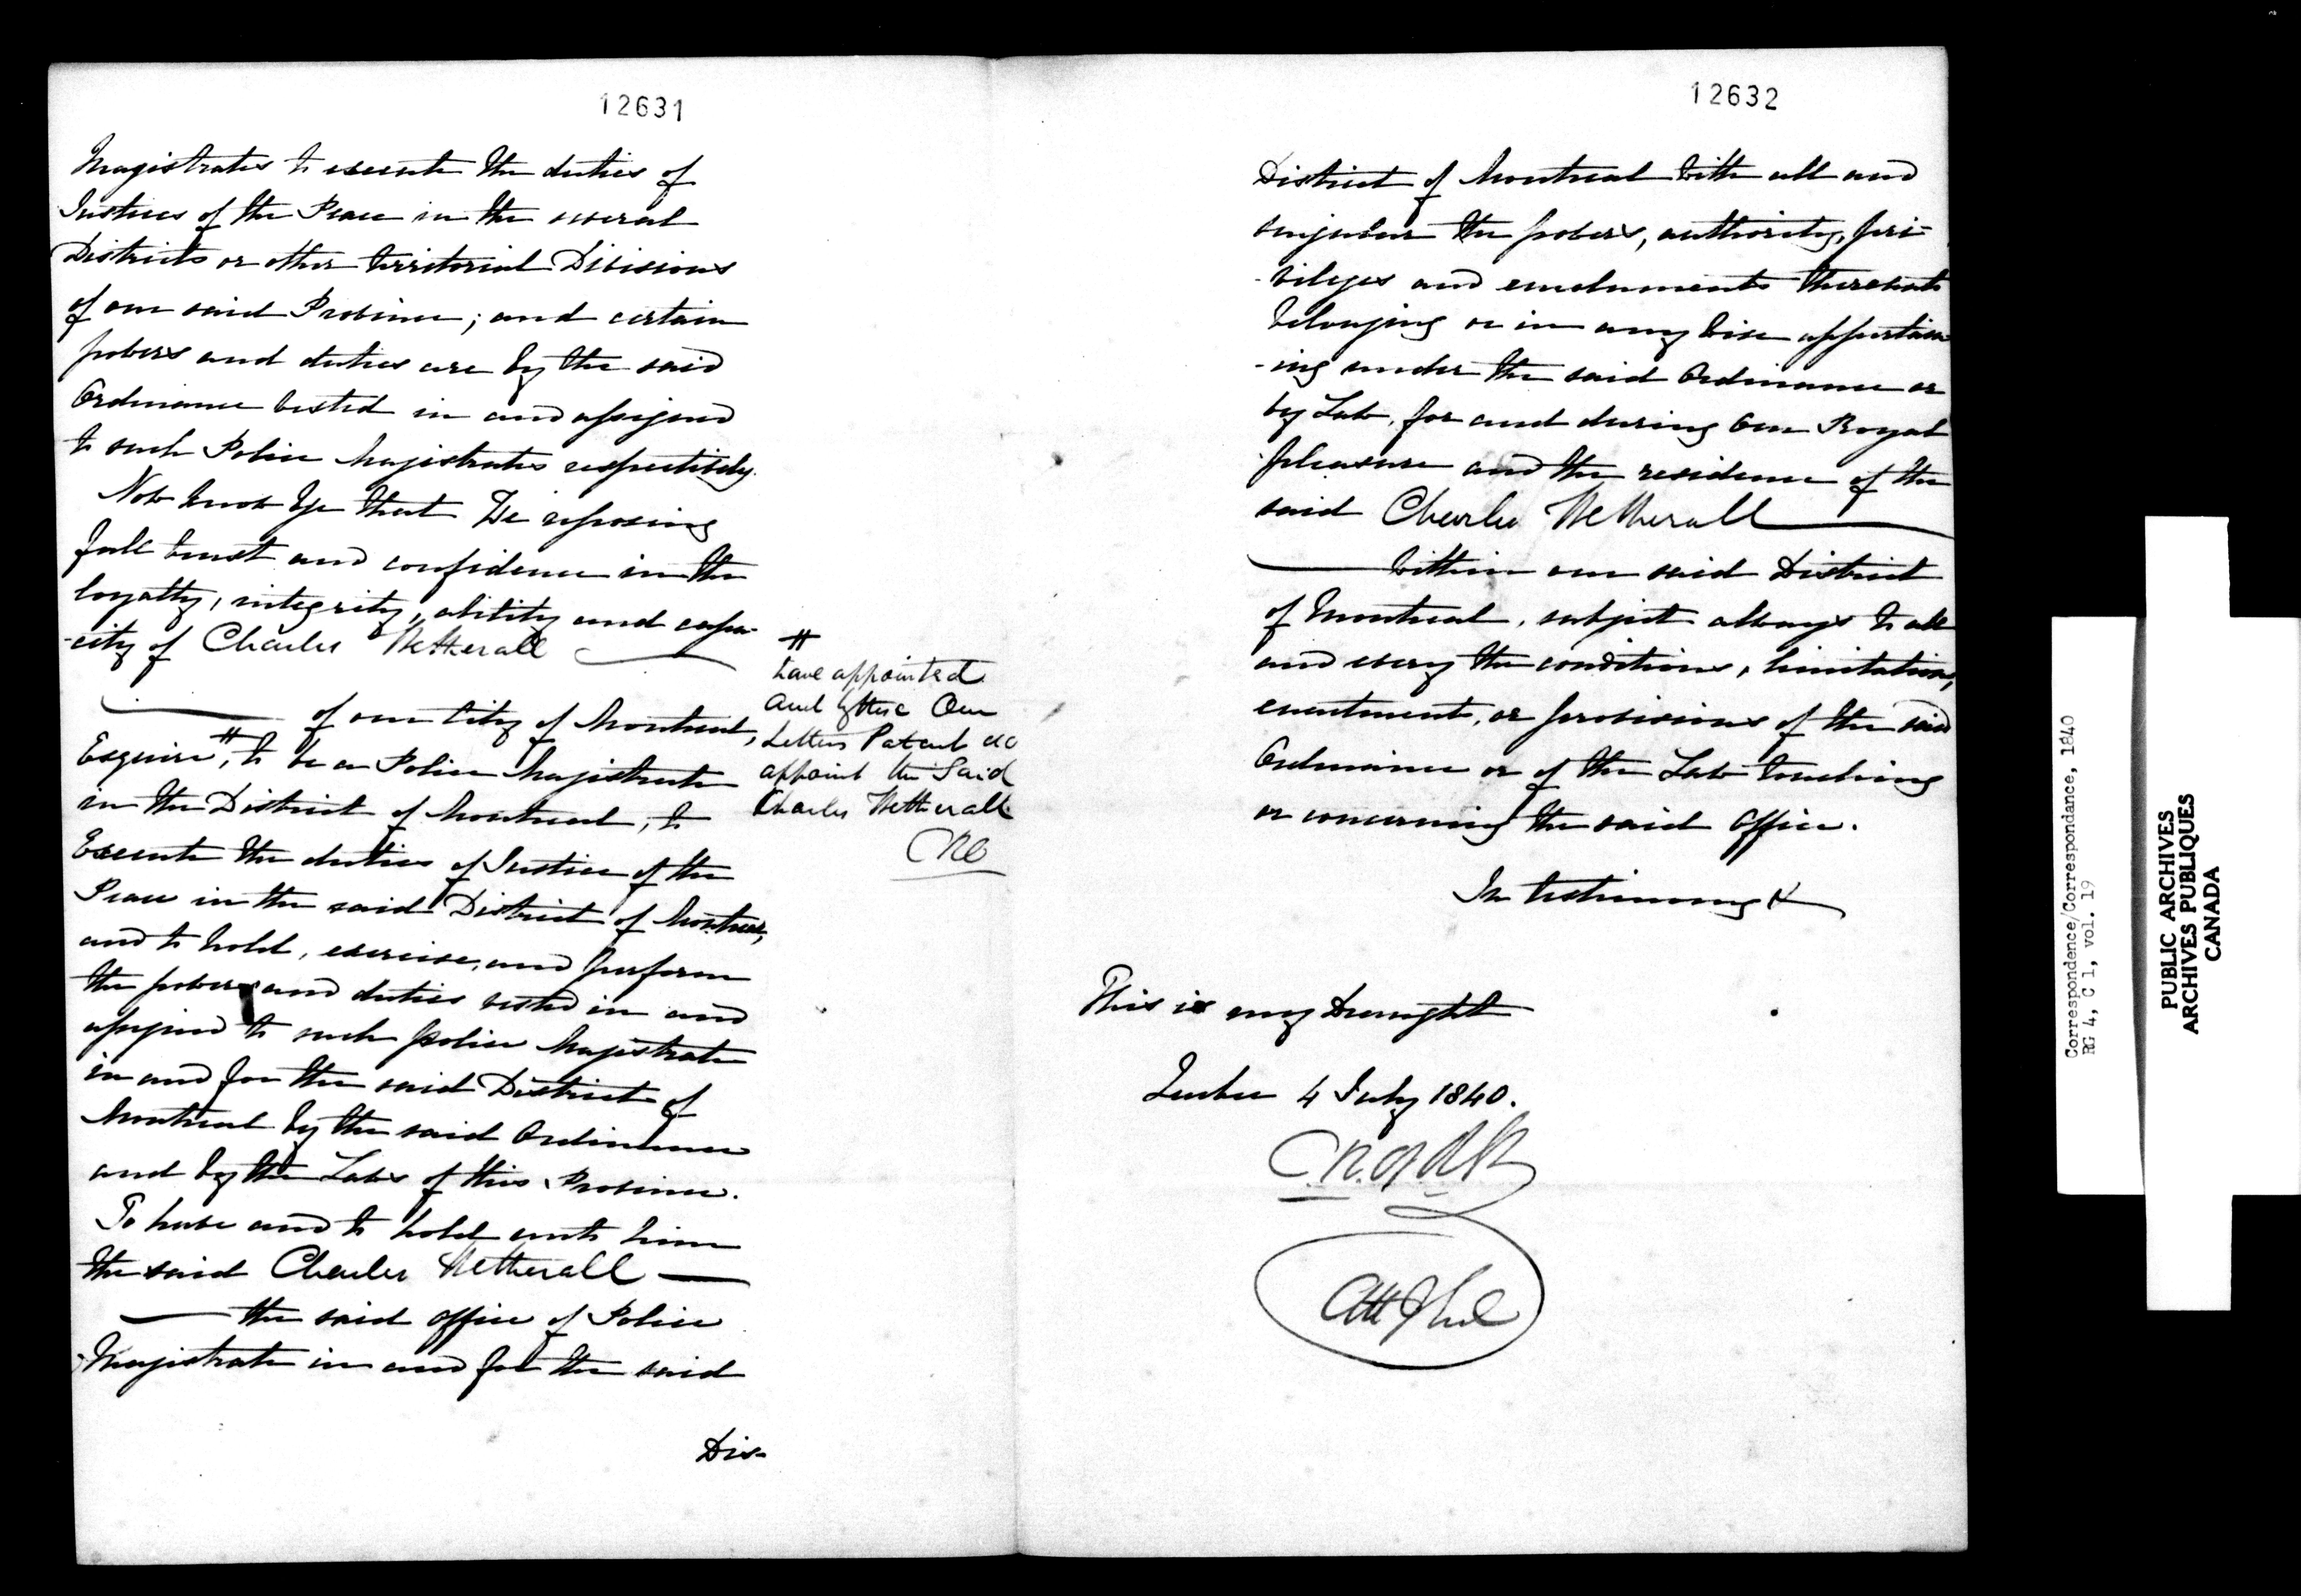 12631
Magistrates to execute the duties of
Justices of the Peace in the several
Districts or other territorial Divisions
of our said Province; and certain
powers and duties are by the said
Ordinance vested in and assigned
to such Police Magistrates respectively.
Now know Ye that We reposing
full trust and confidence in the
loyalty, integrity, ability and capa-
-city of Charles Wetherall
of our City of Montreal,
Esquire #, to be a Police Magistrate
in the District of Montreal, to
Execute the duties of Justice of the
Peace in the said District of Montreal,
and to hold, exercise, and perform
the powers and duties vested in and
assigned to such police Magistrate
in and for the said District of
Montreal by the said Ordinance
and by the Laws of this Province.
To have and to hold unto him
the said Charles Wetherall
the said office of Police
Magistrate in and for the said
Dis-
#
have appointed
and by these Our
Letters Patent do
appoint the Said
Charles Wetherall
12632
District of Montreal with all and
singular the powers, authority, pri-
-vileges and emoluments thereunto
belonging or in any wise appertain
-ing under the said Ordinance or
by Law, for and during Our Royal
pleasure and the residence of the
said Charles Wetherall
within our said District
of Montreal, subject always to all
and every the conditions, limitations,
enactment, or provisions of the said
Ordinance or of the Law touching
or concerning the said Office.
In testimony &
This is my Draught
Quebec 4 July 1840.
Att Genl
Correspondence/Correspondance, 1840
RG 4, C 1, vol. 19
PUBLIC ARCHIVES
ARCHIVES PUBLIQUES
CANADA